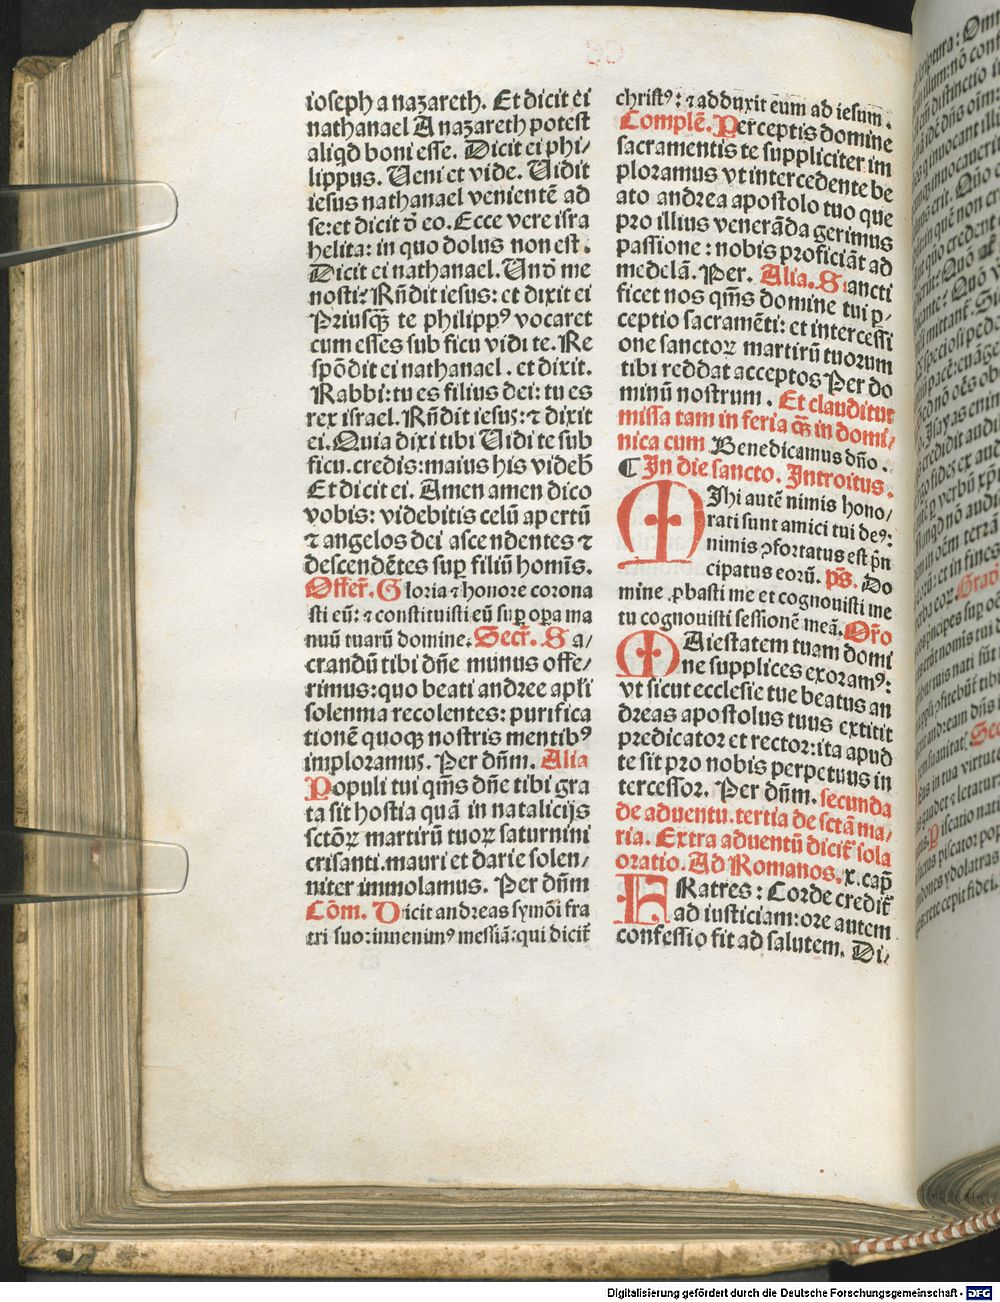 ioseph a nazareth. Et dicit ei
nathanael A nazareth potest
aliqd boni esse. Dicit ei phi/
lippus. Ueni et vide. Uidit
iesus nathanael venientē ad
se: et dicit ō eo. Ecce vere isra
helita: in quo dolus non est.
Dicit ei nathanael. Unō me
nosti? Rn̄dit iesus: et dixit ei
Priusqȝ te philippꝰ vocaret
cum esses sub ficu vidi te. Re
spōdit ei nathanael. et dixit.
Rabbi: tu es filius dei: tu es
rex israel. Rn̄dit iesus: ⁊ dixit
ei. Quia dixi tibi Uidi te sub
ficu. credis: maius his videb̄
Et dicit ei. Amen amen dico
vobis: videbitis celū apertū
⁊ angelos dei ascendentes ⁊
descendētes sup̱ filiū homīs.
Offer̄. Gloria ⁊ honore corona
sti eū: ⁊ constituisti eū sup̱ op̱a ma
nuū tuarū domine. Secr̄. Sa/
crandū tibi dn̄e munus offe/
rimus: quo beati andree apl̄i
solenma recolentes: purifica
tionē quoqȝ nostris mentibꝰ
imploramus. Per dn̄m. Alia
Populi tui qm̄s dn̄e tibi gra
ta sit hostia quā in natalicijs
sctōꝝ martirū tuoꝝ saturnini
crisanti. mauri et darie solen/
niter immolamus. Per dn̄m
Cōm. Dicit andreas symōi fra
tri suo: inuenimꝰ messiā: qui dicit̄
christꝰ: ⁊ adduxit eum ad iesum.
Complē. Perceptis domine
sacramentis te suppliciter im
ploramus vt intercedente be
ato andrea apostolo tuo que
pro illius venerāda gerimus
passione: nobis proficiāt ad
medelā. Per. Alia. Sancti
ficet nos qm̄s domine tui p̱/
ceptio sacramēti: et intercessi
one sanctoꝝ martirū tuorum
tibi reddat acceptos Per do
minū nostrum. Et clauditur
missa tam in feria qȝ in domi/
nica cum Benedicamus dn̄o.
¶ In die sancto. Introitus.
MIhi autē nimis hono/
rati sunt amici tui deꝰ:
nimis ꝯfortatus est p̄n
cipatus eorū. pš. Do
mine ꝓbasti me et cognouisti me
tu cognouisti sessionē meā. Or̄o
MAiestatem tuam domi
ne supplices exoramꝰ:
vt sicut ecclesie tue beatus an
dreas apostolus tuus extitit
predicator et rector: ita apud
te sit pro nobis perpetuus in
tercessor. Per dn̄m. secunda
de aduentu. tertia de sctā ma/
ria. Extra aduentū dicit̄ sola
oratio. Ad Romanos. x. cap̄
FRatres: Corde credit̄
ad iusticiam: ore autem
confessio fit ad salutem. Di/
Digitalisierung gefördert durch die Deutsche Forschungsgemeinschaft - DFG